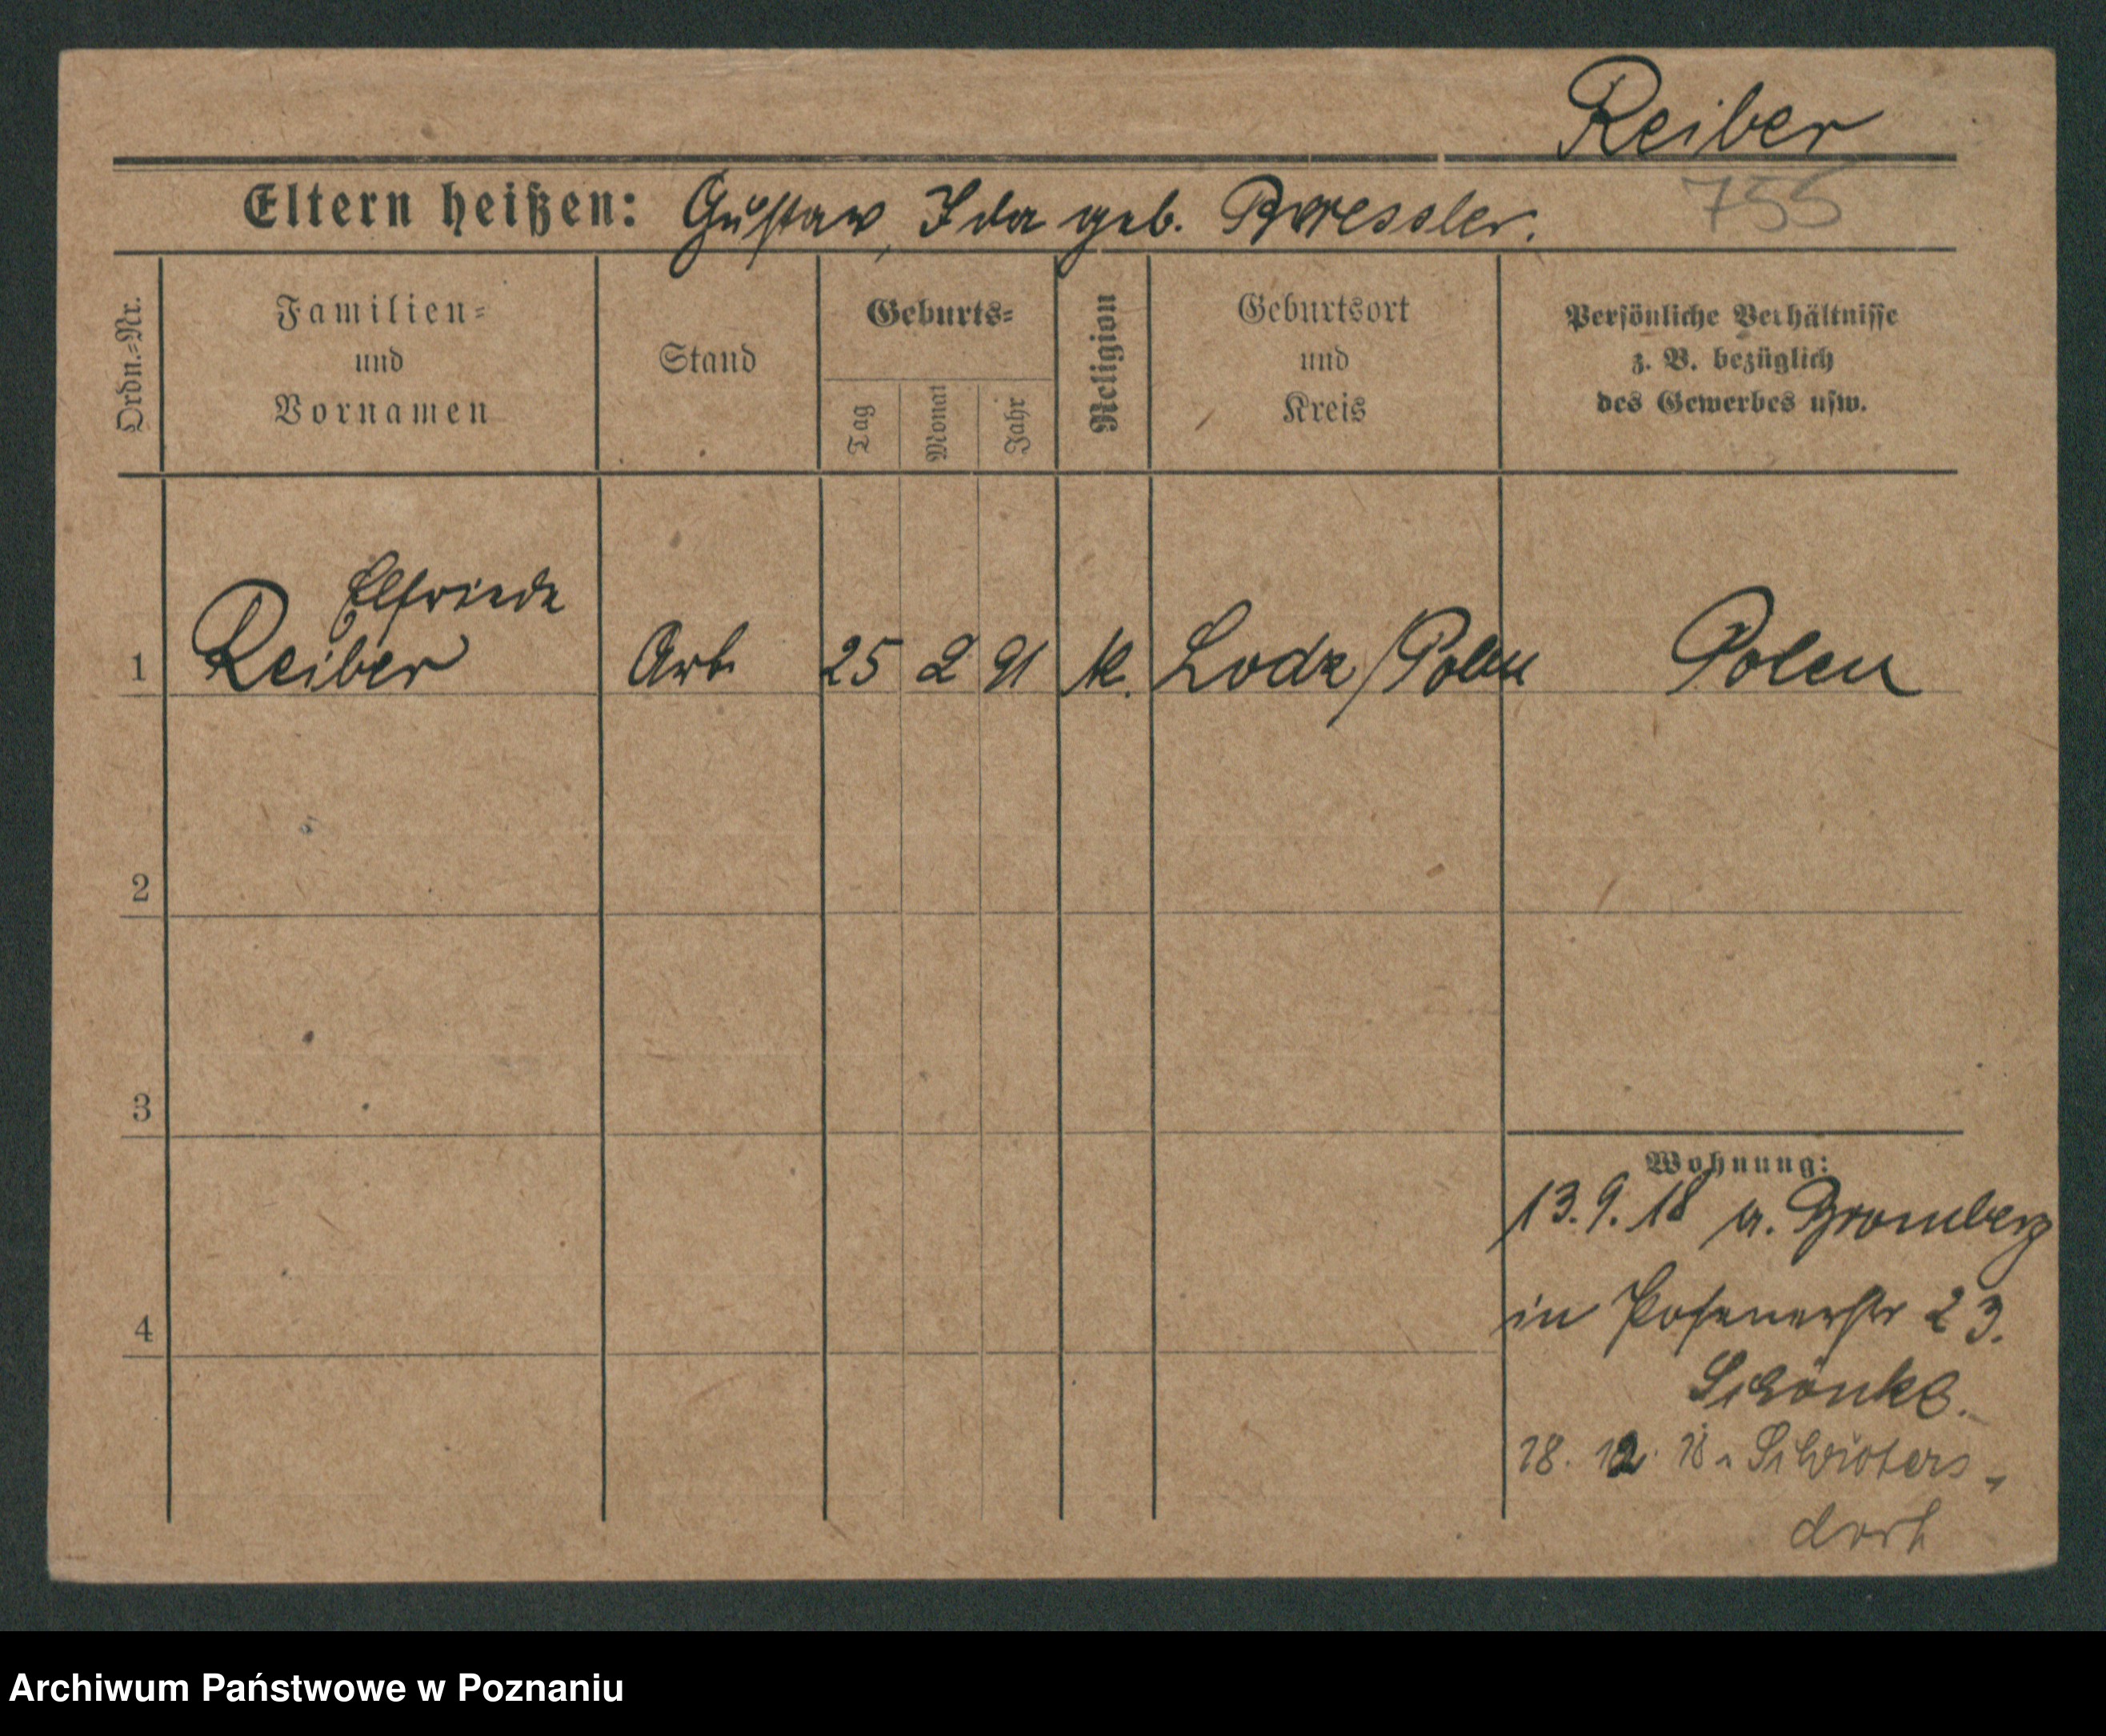 Reiber
755
Eltern heißen: Gustav, Ida geb. Bressler.
Ordn.-Nr.
Familien- und Vornamen
Stand
Geburts-
Tag
Monat
Jahr
Religion
Geburtsort und Kreis
Persönliche Verhältnisse z. B. bezüglich des Gewerbes usw.
Elfriede
1 Reiber Arb. 25 2 91 k. Lodz / Polen Polen
2
3
Wohnung:
13.9.18 a. Bromberg
in Posenerstr 23.
4
Schönke.
18. 12. 18.
dorf
Archiwum Państwowe w Poznaniu